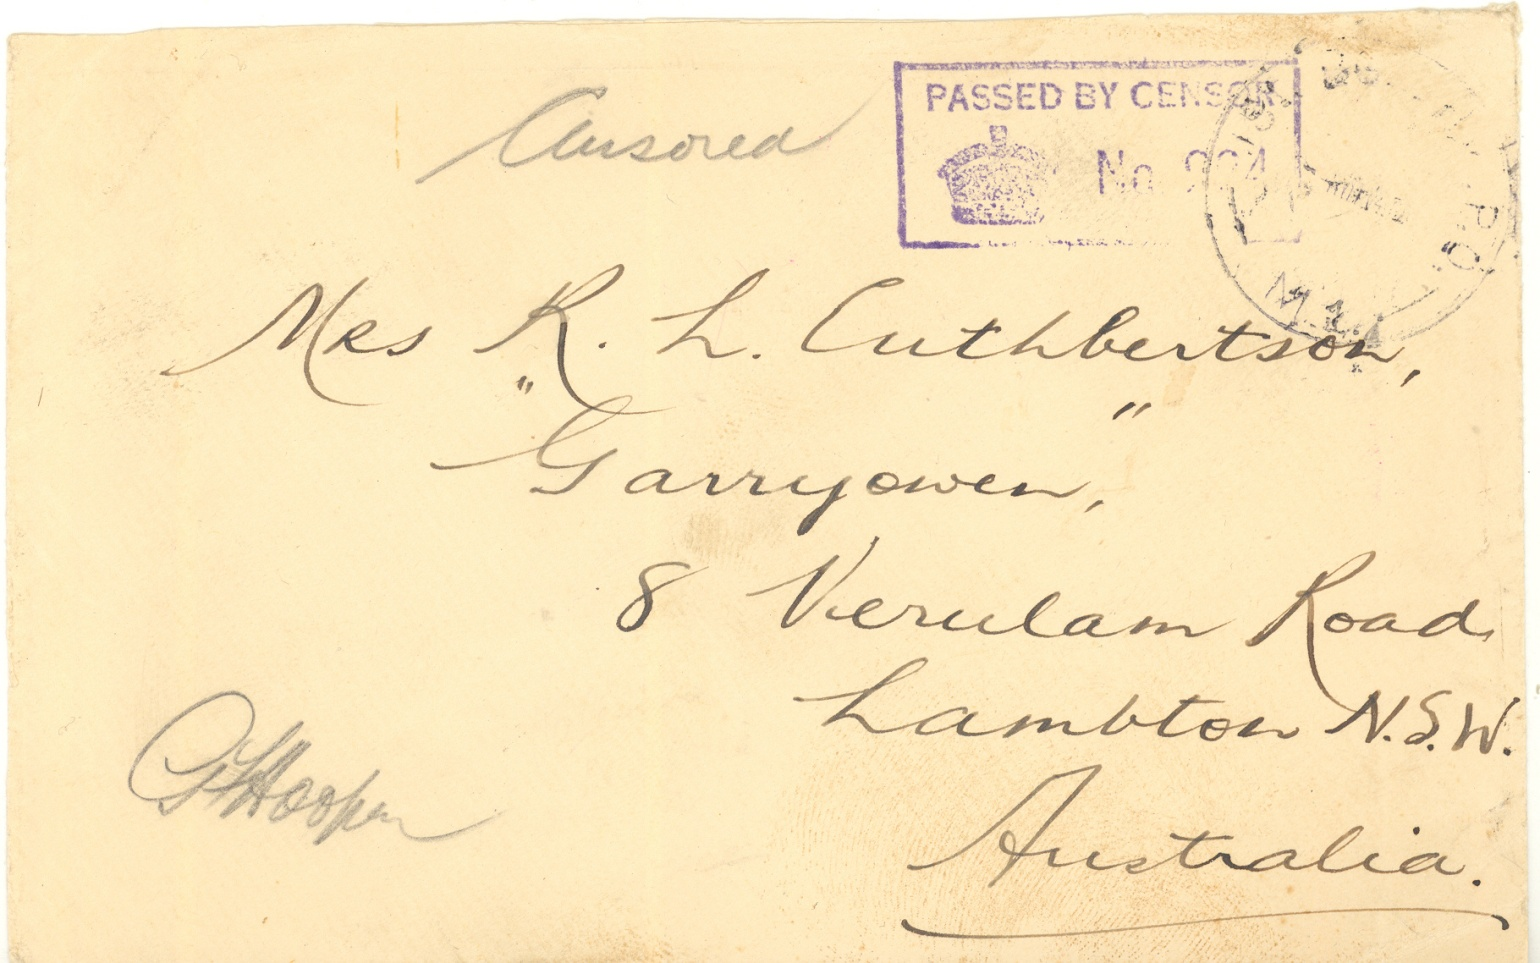 Censored
PASSED BY CENSOR
No.
P.O.
Mrs R. L. Cuthbertson,
"Garryowen,"
8 Verulam Road
Lambton N.S.W.
Australia.
Hooper